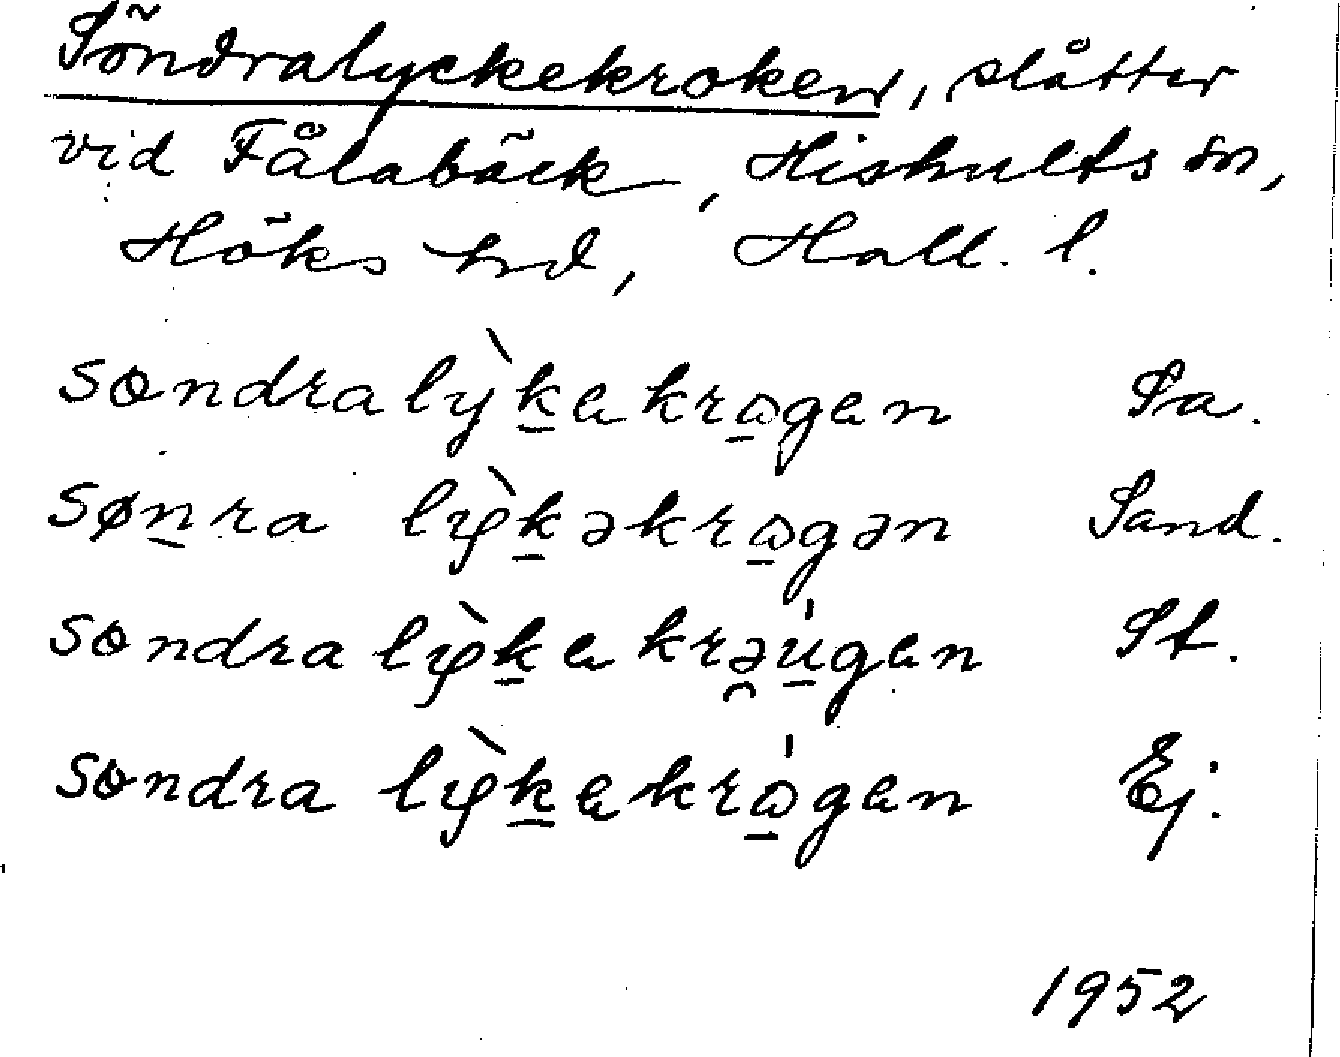 Söndralyckekroken, slåtter
vid Fålabäck, Hishults sn,
Höks hd, Hall. l.
søndralỳk̲ekrɷ̲gen Sa.
søn̲ra lỳk̲əkrɷ̲gən Sand.
søndra lỳk̲e krə̯u̲̍gen St.
søndra lỳk̲ekrɷ̲̍gen Ej.
1952